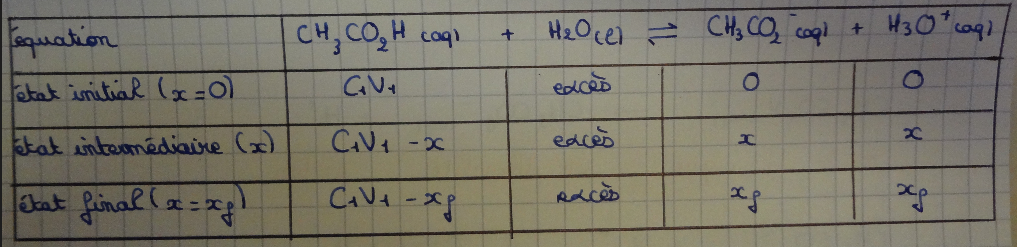 équation CH₃CO₂H (aq) + H₂O(l) ⇌ CH₃CO₂⁻ (aq) + H₃O⁺ (aq)
état initial (x=0) C₁V₁ excès 0 0
état intermédiaire (x) C₁V₁ - x excès x x
état final (x = xf) C₁V₁ - xf excès xf xf